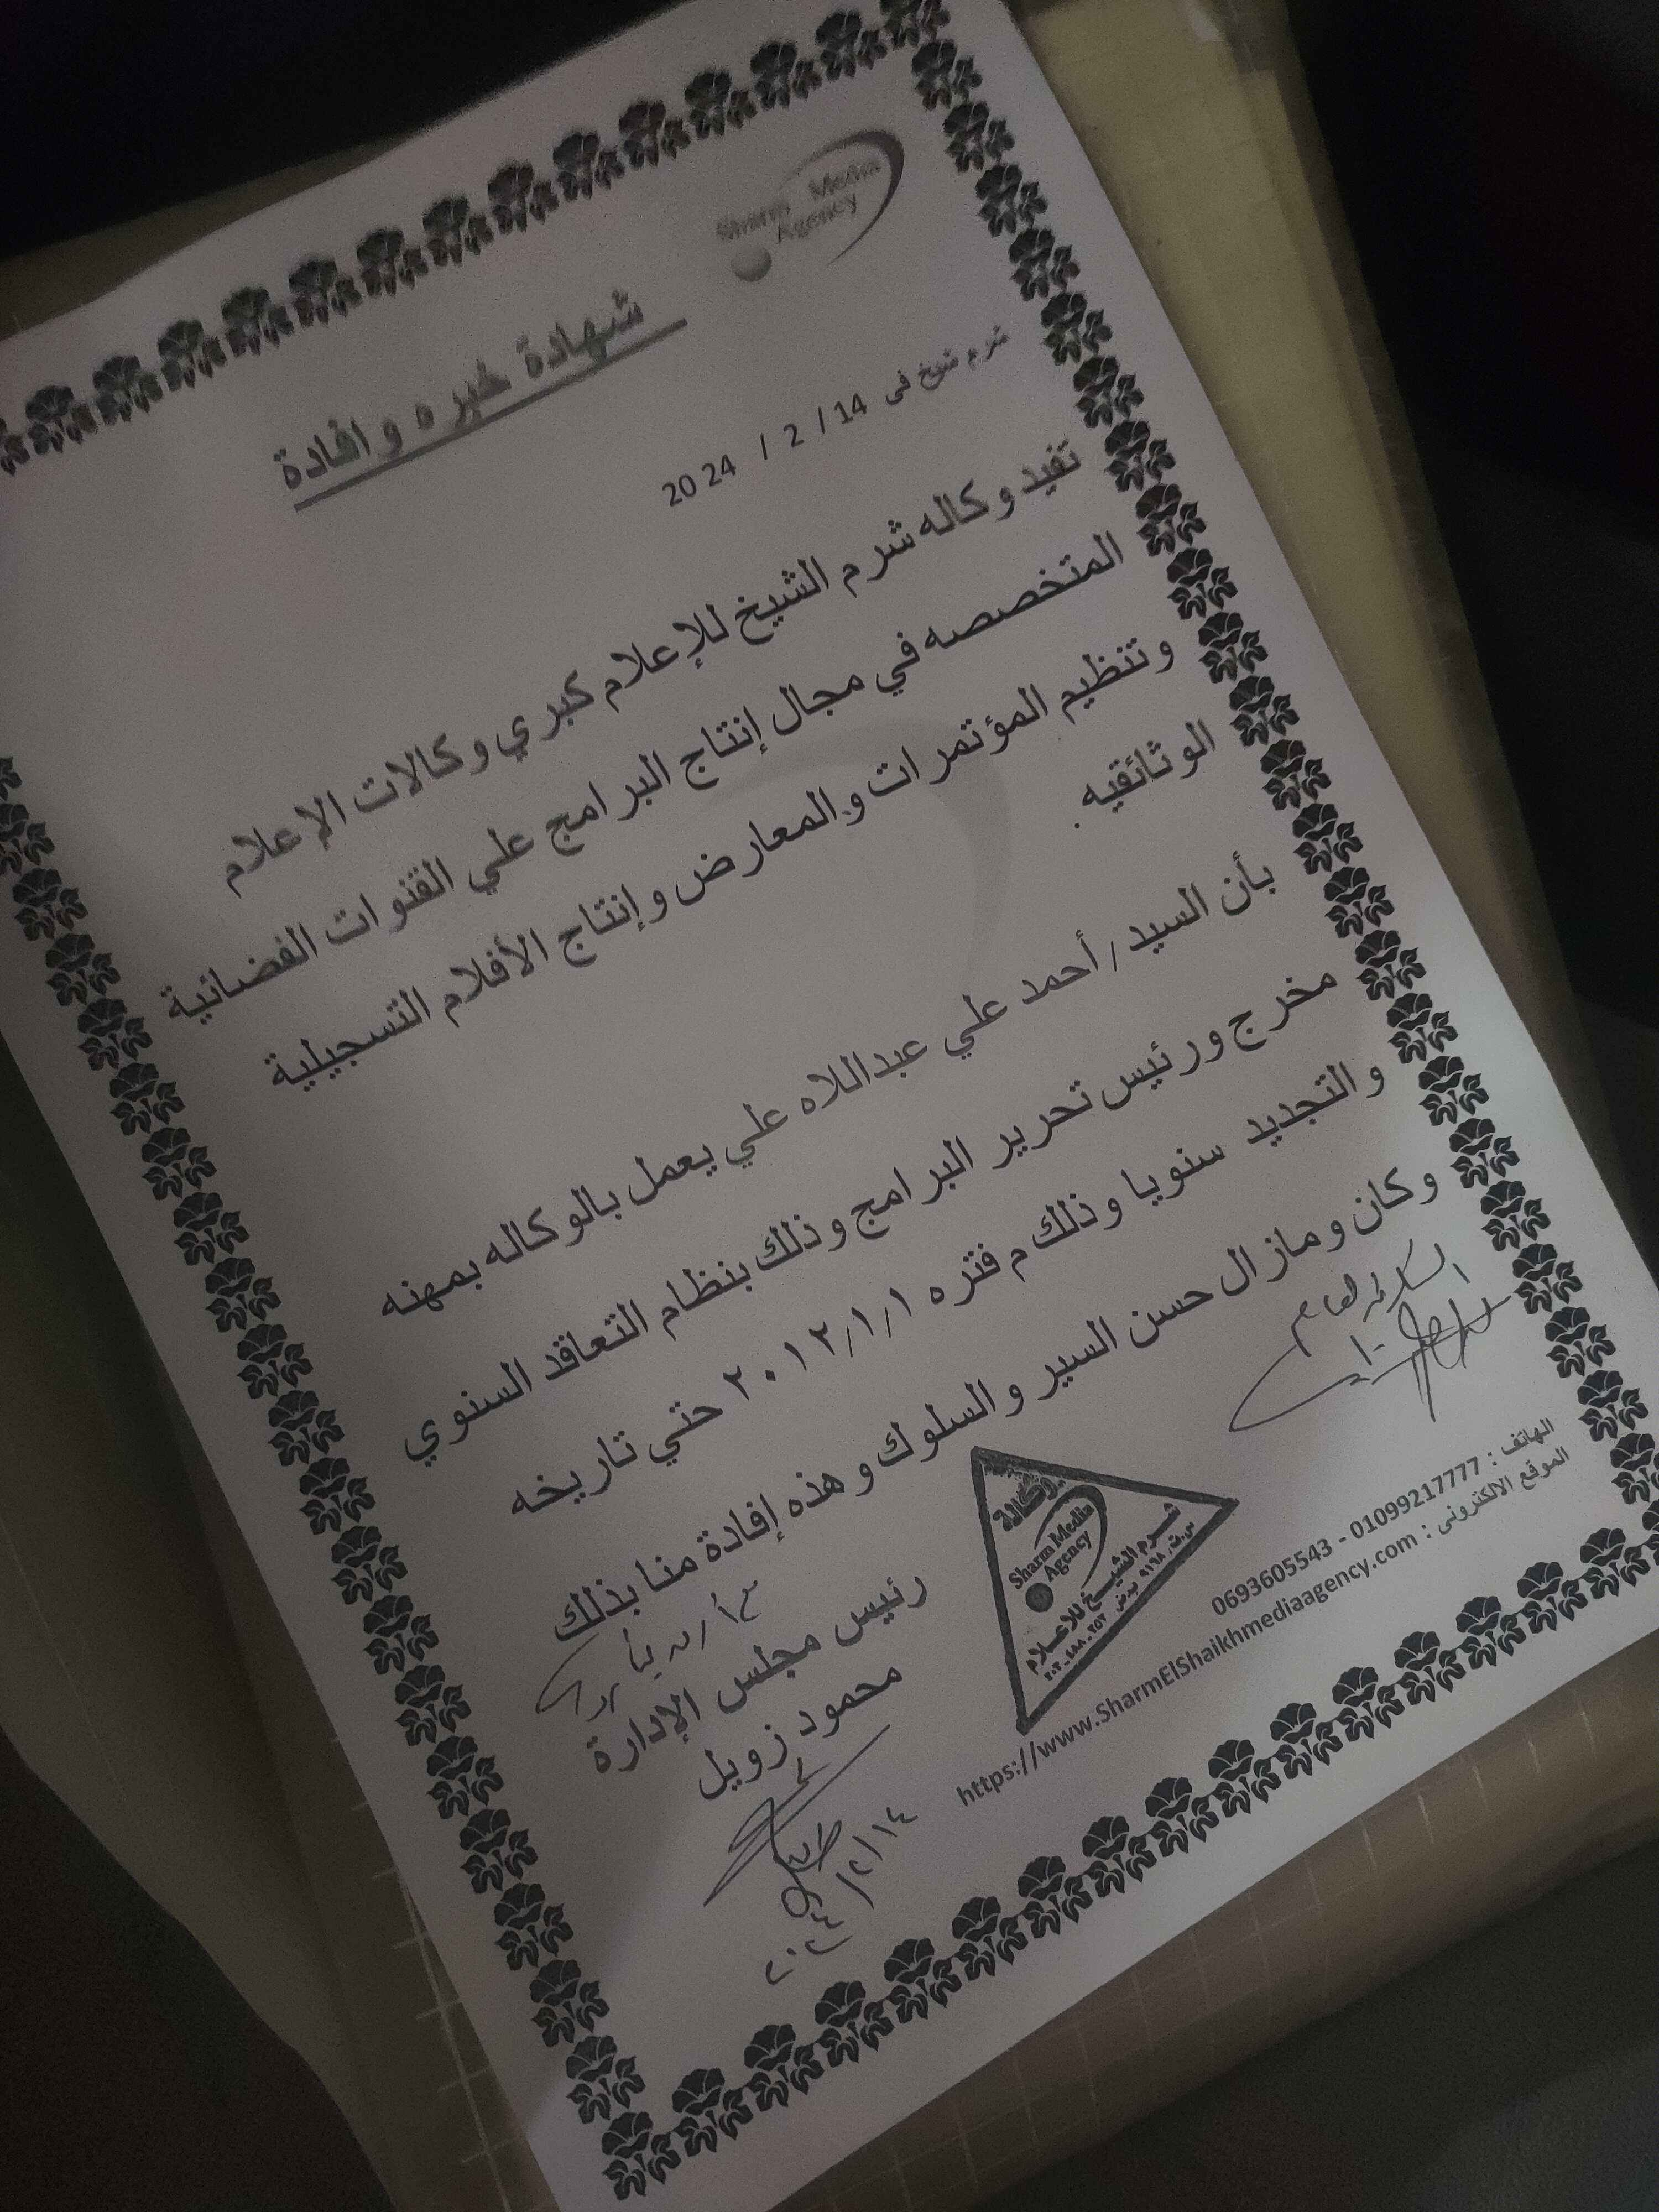 Sharm Media
Agency
شهادة خبره وافادة
شرم شيخ فى 14/ 2 / 2024
تفيد وكاله شرم الشيخ للإعلام كبري وكالات الإعلام
المتخصصه في مجال إنتاج البرامج علي القنوات الفضائية
وتنظيم المؤتمرات والمعارض وإنتاج الأفلام التسجيلية
الوثائقيه .
بأن السيد/ أحمد علي عبداللاه علي يعمل بالوكاله بمهنه
مخرج ورئيس تحرير البرامج وذلك بنظام التعاقد السنوي
والتجديد سنويا وذلك م فتره ٢٠١٢/١/١ حتي تاريخه
وكان ومازال حسن السير والسلوك وهذه إفادة منا بذلك
رئيس مجلس الإدارة
محمود زويل
٢٠٢٤/٢/١٤
وكالة
Sharm Media
Agency
شرم الشيخ للاعلام
الهاتف : 01099217777 - 0693605543
الموقع الالكترونى : https://www.SharmElShaikhmediaagency.com